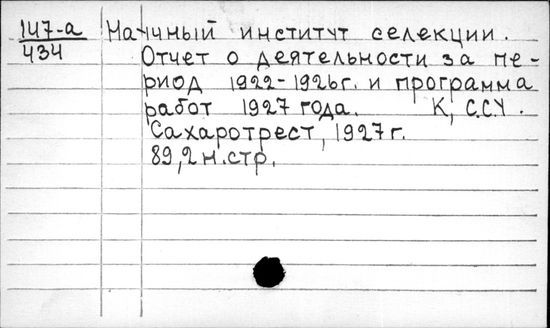 147-а Научный институт селекции.
434 Отчет о деятельности за пе-
риод 1922-1926г. и программа
работ 1927 года. К, С.С.У.
Сахаротрест, 1927г.
89, 2 н. стр.